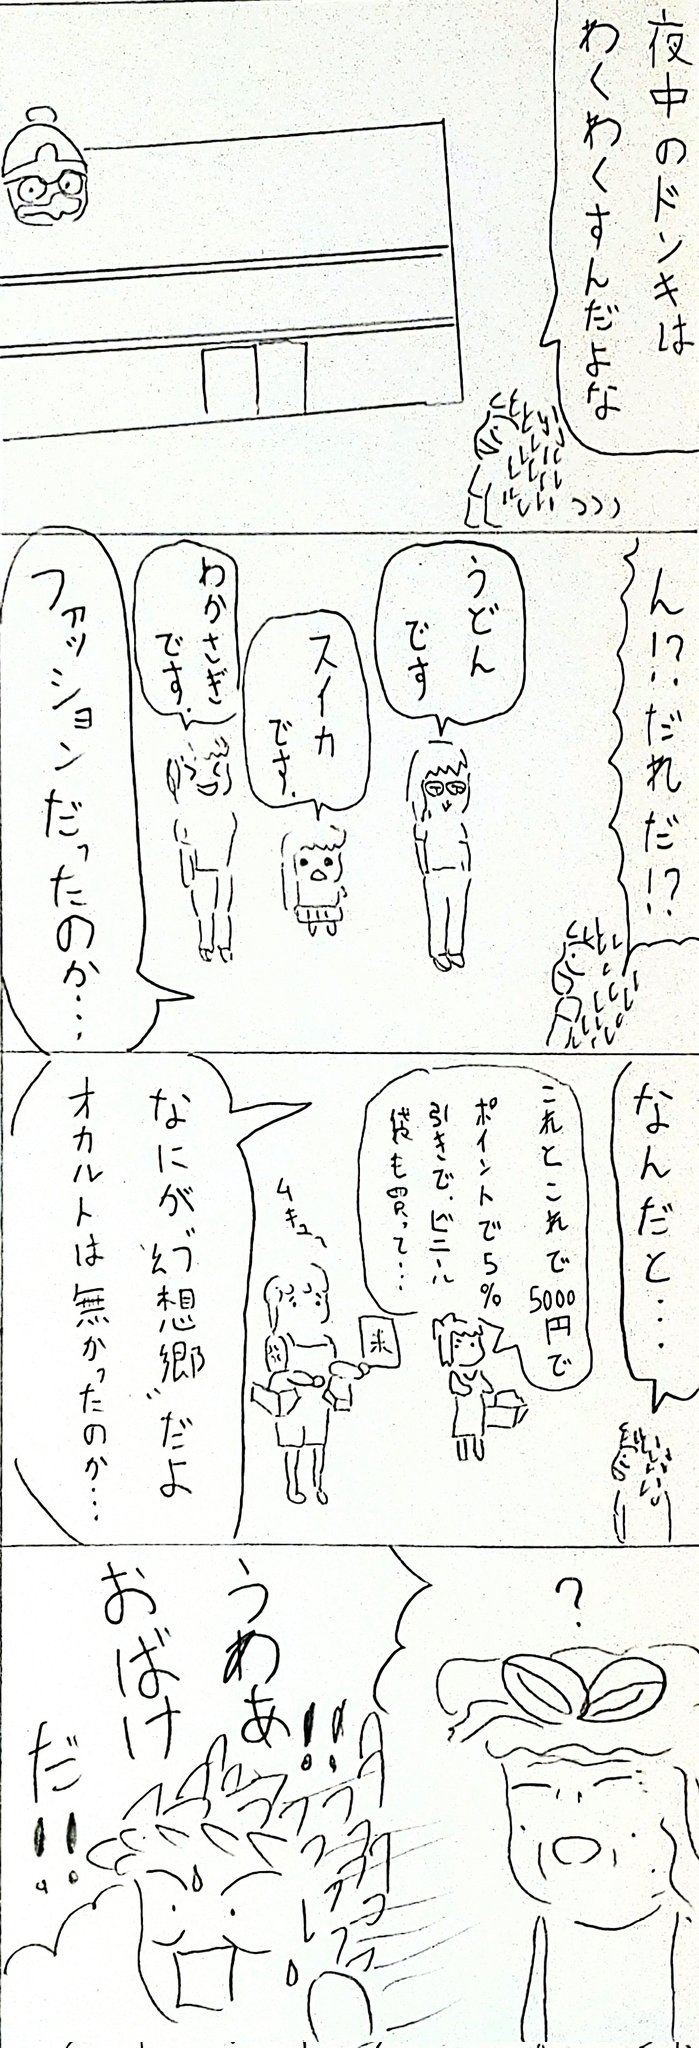 夜中のドンキは
わくわくすんだよな
ん!?だれだ!?
うどん
です
スイカ
です.
わかさぎ
です.
ファッションだったのか…
なんだと…
これとこれで5000円で
ポイントで5%
引きで、ビニール
袋も買って…
ムキュっ
米
なにが〝幻想郷〟だよ
オカルトは無かったのか…
?
うわぁ!!
おばけ
だ!!